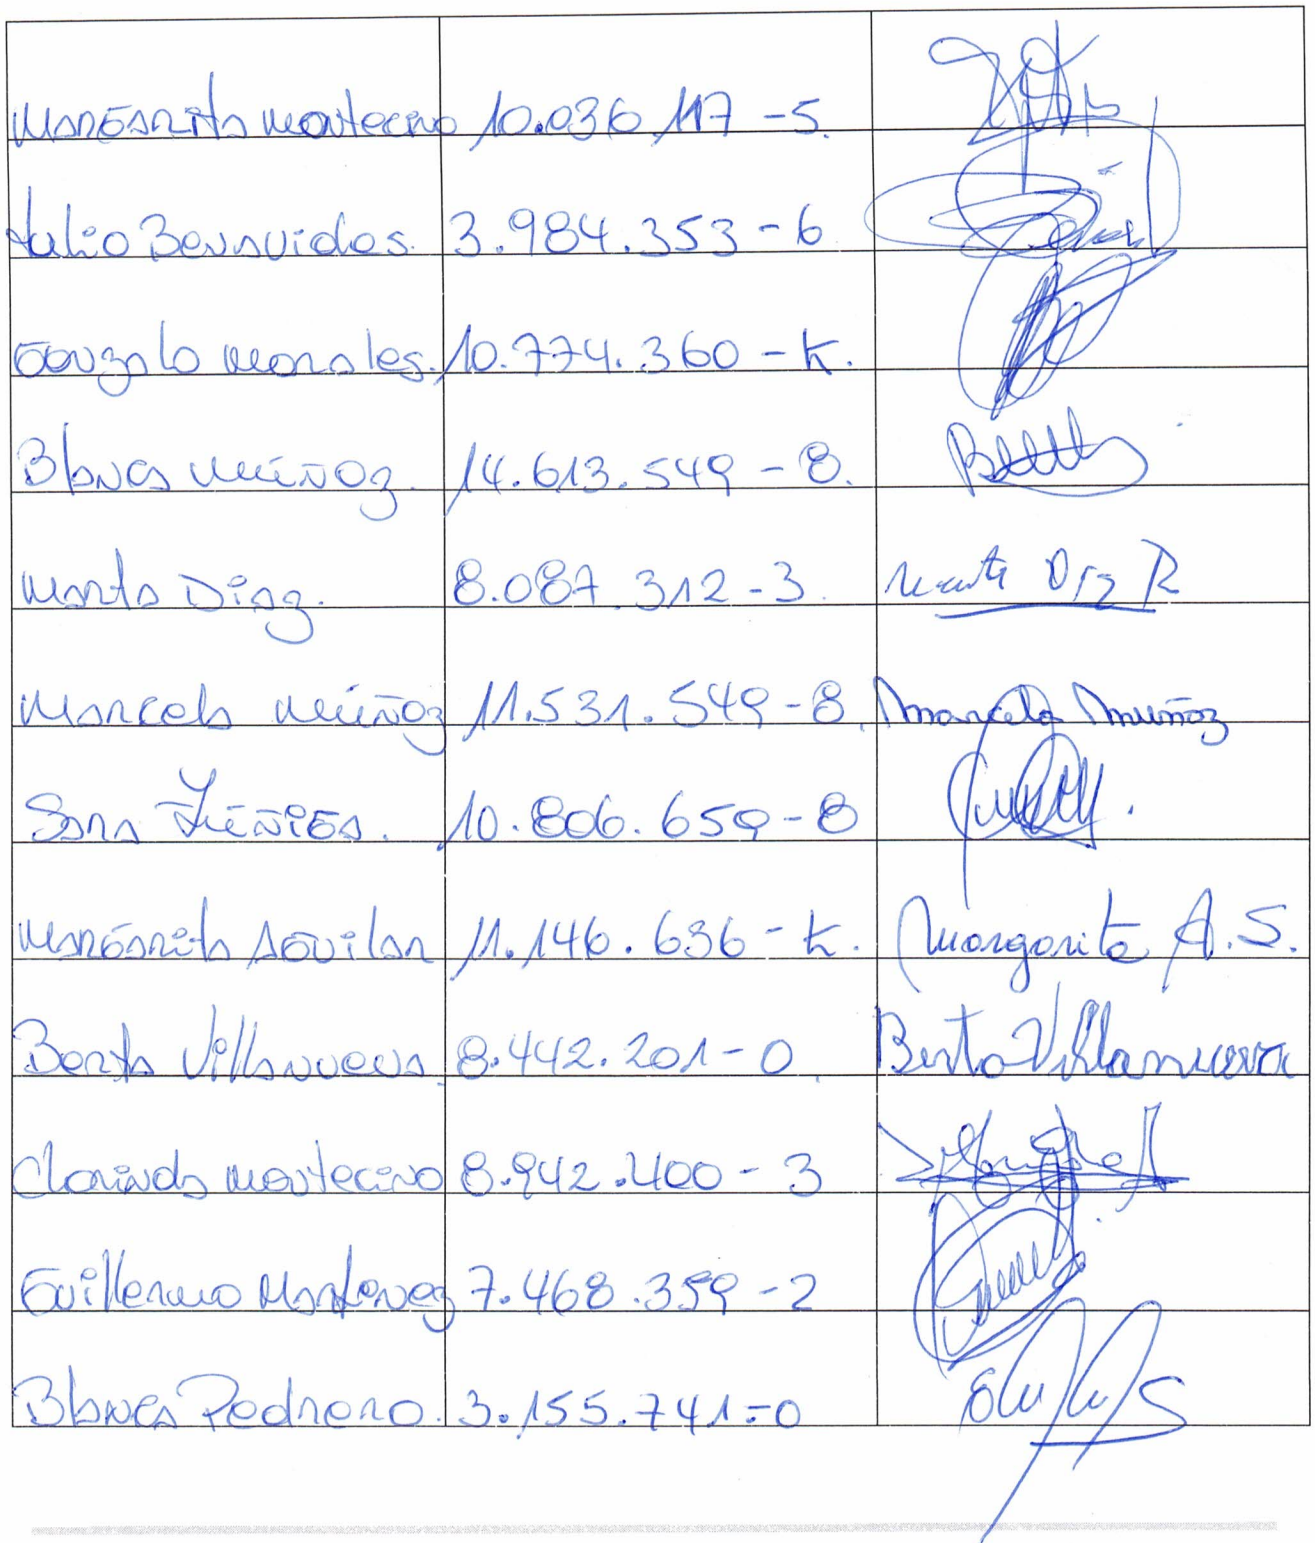 Margarita Montecino 10.036.117-5.
Julio Benavides. 3.984.353-6
Gonzalo Morales. 10.774.360-K.
Blanca Muñoz. 14.613.549-8.
Marta Diaz. 8.087.312-3. Marta Diaz R
Marcela Muñoz 11.531.549-8. Marcela Muñoz
Sara Zúñiga. 10.806.659-8
Margarita Aguilar 11.146.636-K. Margarita A.S.
Berta Villanueva. 8.442.201-0. Berta Villanueva
Clarinda Montecino 8.942.400-3
Guillermo Martinez 7.468.359-2
Blanca Pedrero. 3.155.741-0